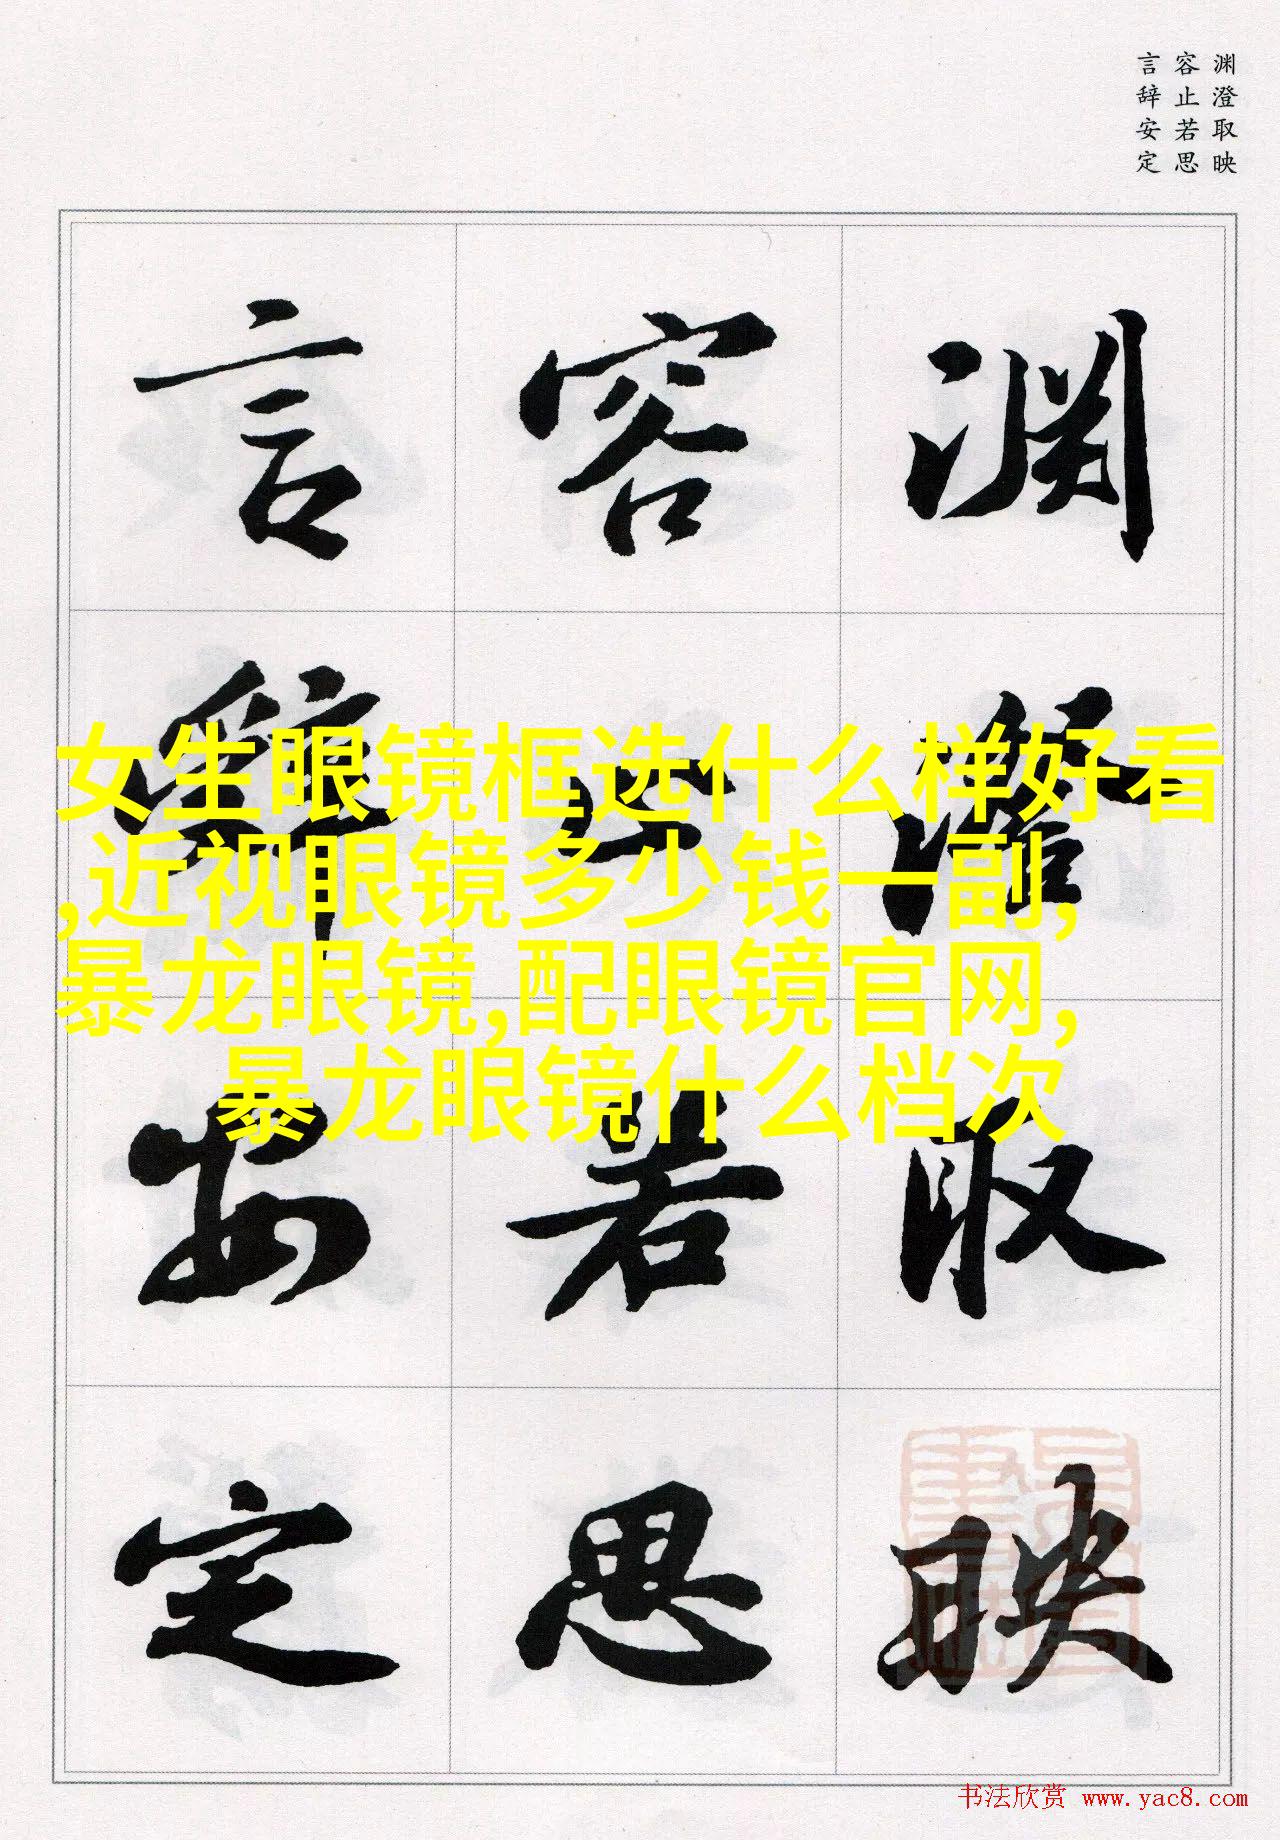 渊澄取映
容止若思
言辞安定
渊澄取映
容止若思
言辞安定
女生眼镜框选什么样好看
,近视眼镜多少钱一副,
暴龙眼镜,配眼镜官网,
暴龙眼镜什么档次
书法欣赏 www.yac8.com